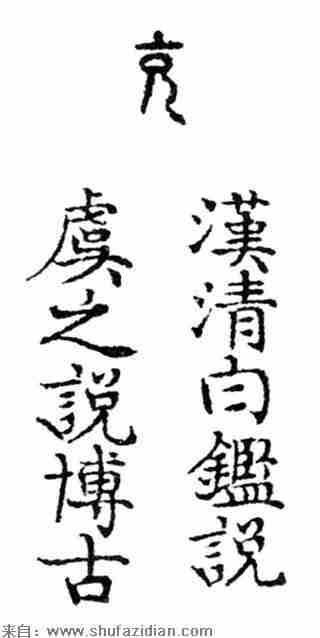 漢清白鑑説
虞之説博古
来自：www.shufazidian.com